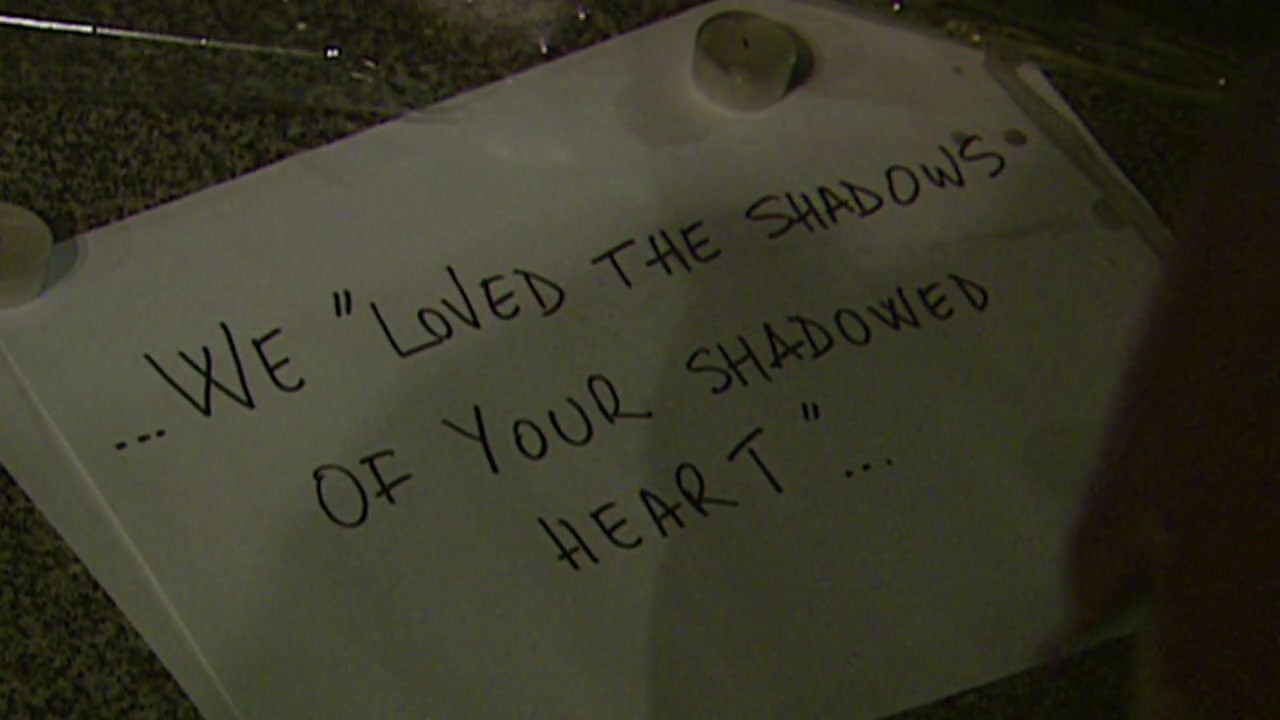 ...WE "LOVED THE SHADOWS
OF YOUR SHADOWED
HEART"...